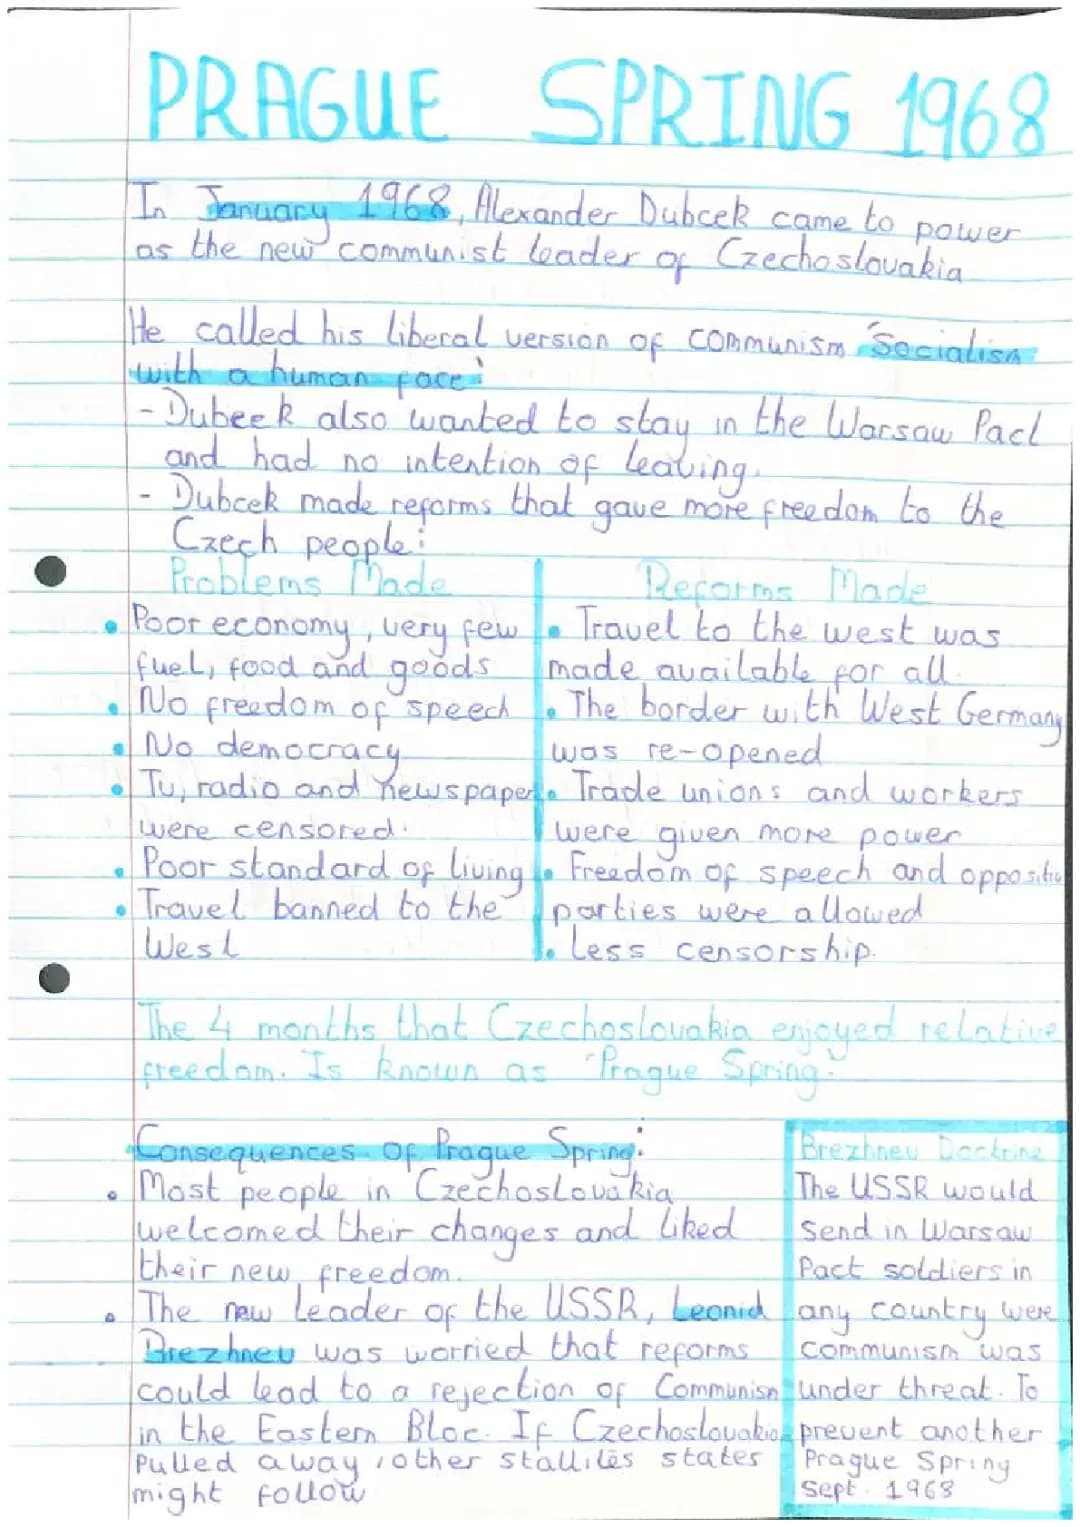 PRAGUE SPRING 1968
In January 1968, Alexander Dubcek came to power
as the new communist leader of Czechoslovakia
He called his liberal version of communism 'Socialism
with a human face'
- Dubcek also wanted to stay in the Warsaw Pact
and had no intention of leaving.
- Dubcek made reforms that gave more freedom to the
Czech people:
Problems Made
• Poor economy, very few
fuel, food and goods
• No freedom of speech
• No democracy
• Tv, radio and newspaper
were censored.
• Poor standard of living
• Travel banned to the
West
Reforms Made
• Travel to the west was
made available for all.
• The border with West Germany
was re-opened
• Trade unions and workers
were given more power
• Freedom of speech and opposition
parties were allowed
• Less censorship.
The 4 months that Czechoslovakia enjoyed relative
freedom. Is known as "Prague Spring."
Consequences of Prague Spring:
• Most people in Czechoslovakia
welcomed their changes and liked
their new freedom.
• The new leader of the USSR, Leonid
Brezhnev was worried that reforms
could lead to a rejection of Communism
in the Eastern Bloc. If Czechoslovakia
pulled away, other stallites states
might follow
Brezhnev Doctrine
The USSR would
send in Warsaw
Pact soldiers in
any country were
communism was
under threat. To
prevent another
Prague Spring
Sept. 1968